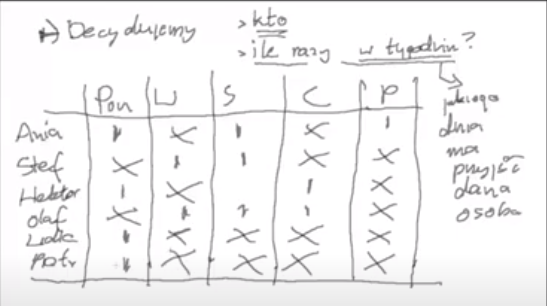 → Decydujemy > kto
> ile razy w tygodniu?
jakiego
dnia
ma
przyjść
dana
osoba
Pon W S C P
Ania ı X ı X ı
Stef X ı ı X X
Hektor ı X ı X
Olaf X ı ı ı X
Lidia ı X X X X
Piotr ı X X X X